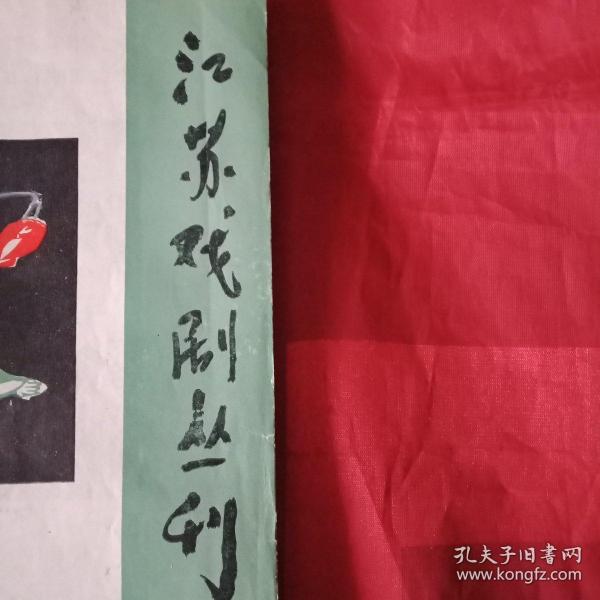 江苏戏剧丛刊
孔夫子旧书网
www.kongfz.com